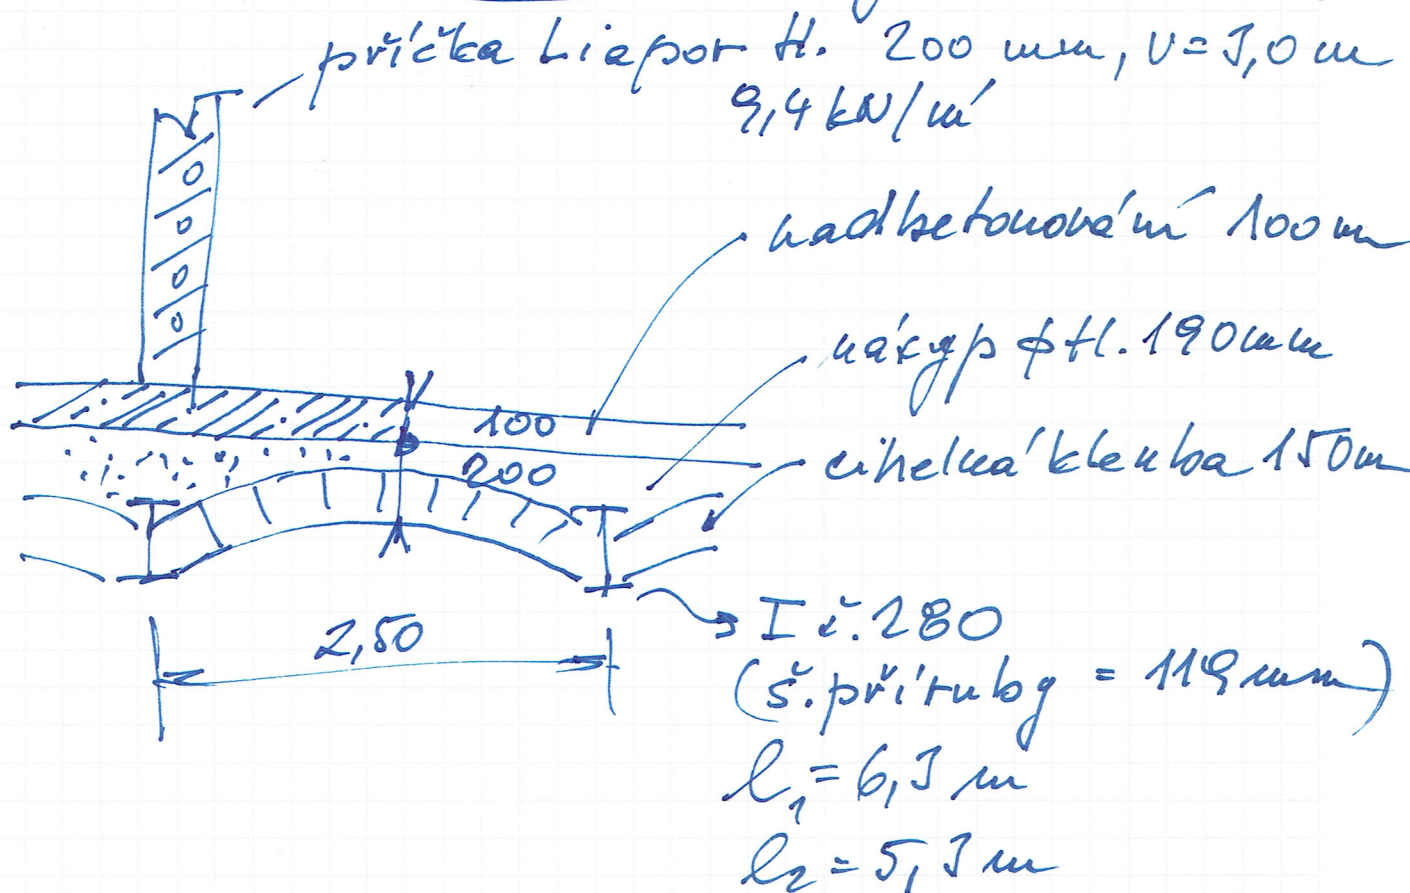 příčka Liapor tl. 200 mm, v=3,0 m
9,4 kN/m'
nadbetonování 100 mm
násyp φ tl. 190 mm
100
cihelná klenba 150 mm
200
2,50
I č. 280
(š. příruby = 119 mm)
l₁ = 6,3 m
l₂ = 5,3 m